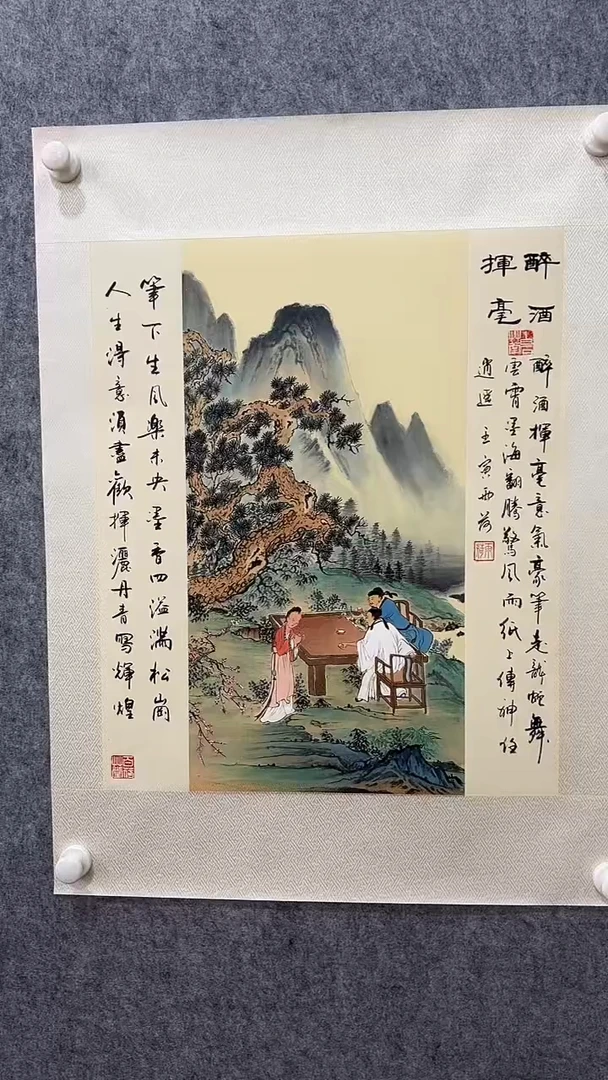 醉酒
揮毫
醉酒揮毫意氣豪筆走龍蛇舞
雲霄墨海翻騰驚風雨紙上傳神任
逍遥 壬寅
筆下生風樂未央墨香四溢滿松崗
人生得意須盡歡揮灑丹青寫輝煌